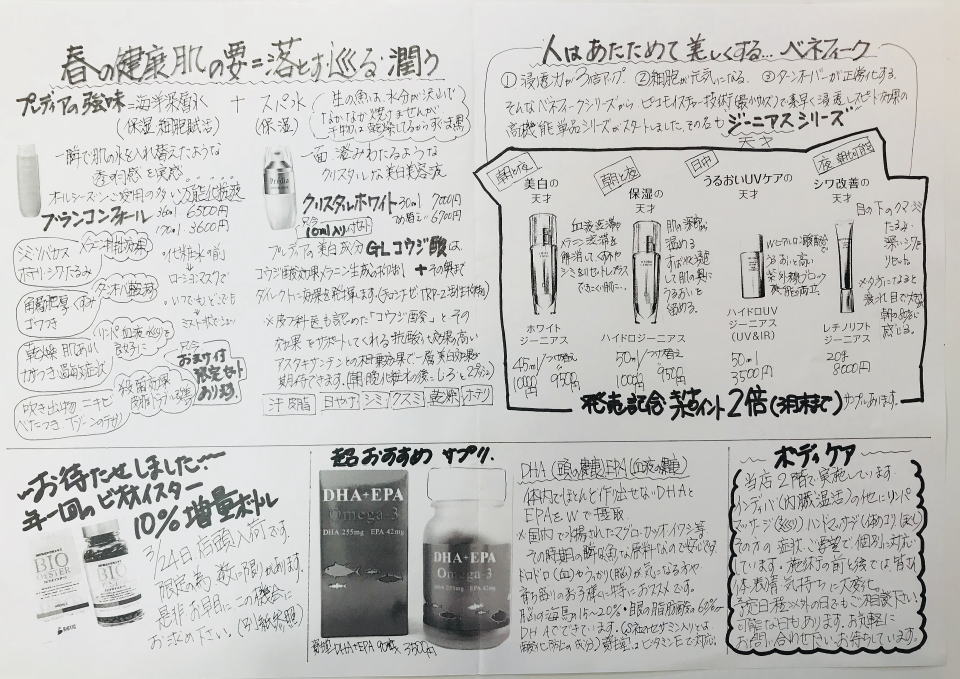 春の健康肌の要=落とす巡る潤う
プレディアの強味=海洋深層水 + スパ水
(保湿細胞賦活) (保湿)
生の魚は水分が沢山で
なかなか焼けませんが
干物は乾燥してるからすぐ真黒
一瞬で肌の水を入れ替えたような
透明感を実感。
オールシーズンご愛用の多い万能化粧液
ブランコンフォール 360ml 6500円
170ml 3600円
一面澄みわたるような
クリスタルな美白美容液
クリスタルホワイト 30ml 7000円
10ml入り付セット つめ替え 6700円
プレディアの美白成分GLコウジ酸は、
コウジ酸効果メラニン生成の抑制 + その奥まで
ダイレクトに効果を発揮します。
※皮フ科医も認めた「コウジ酸」とその
効果をサポートしてくれる抗酸化効果の高い
アスタキサンテンとの相乗効果で一層美白効果が
期待できます。
汗 皮脂 日やけ シミ クスミ 乾燥 ホテリ
シミソバカス メラニン抑制効果
ホテリ シワたるみ
角層肥厚 くすみ
ゴワつき
乾燥 肌あれ
カサつき 過敏症状
リンパ血液巡り
良好に
吹き出物 ニキビ
殺菌効果
べたつき Tゾーンのテカリ
化粧水の前に
ローションマスクで
いつでもどこでも
おまけ付
限定セット
あります。
人はあたためて美しくする… ベネフィーク
①浸透力が3倍アップ ②細胞が元気になる。 ③ターンオーバーが正常化する。
そんなベネフィークシリーズから ピコモイスチャー技術(最小サイズ)で素早く浸透しスピード効果の
高機能単品シリーズがスタートしました。その名も ジーニアスシリーズ
天才
朝と夜
美白の
天才
血液停滞や
メラニン停滞を
解消してくすみや
シミをリセットしブロック
できにくい肌に…
ホワイト
ジーニアス
45ml/つけ替え
10000円 9500円
朝と夜
保湿の
天才
肌の深部を
温める
すばやく浸透
して肌の奥に
うるおいを
留める。
ハイドロジーニアス
50ml/つけ替え
10000円 9500円
日中
うるおいUVケアの
天才
Wヒアルロン酸配合
うるおいと高い
紫外線ブロック
機能の両立。
ハイドロUV
ジーニアス
(UV&IR)
50ml
3500円
夜 朝も可能
シワ改善の
天才
目の下のクマ シミ
たるみ
深いシワを
リセット
レチノリフト
ジーニアス
20g
8000円
発売記念 美ポイント2倍(3月末まで) サンプルあります。
お待たせしました
年一回のビオオイスター
10%増量ボトル
BIO
OYSTER
3/24日店頭入荷です。
限定の為、数に限りがあります。
是非お早目にこの機会に
お求め下さい。(別紙参照)
超おすすめ サプリ.
DHA+EPA
Omega-3
DHA 255mg EPA 42mg
DHA+EPA
Omega-3
DHA+EPA 90粒 3500円
DHA (頭の健康) EPA (血液の健康)
体内でほとんど作り出せないDHAと
EPAをWで摂取
※国内で水揚されたマグロ・カツオ・イワシ等
その時期の瞬の魚を原料なので安心です。
ドロドロ(血)やうっかり(脳)が気になる方や
育ち盛りのお子様に特におススメです。
脳の海馬の15〜20%・眼の脂肪酸の60%が
DHAでできています。
ボディケア
当店2階で実施しています。
インディバ(内臓温活)の他にリンパ
マッサージ ハンドマッサージ
その方の症状、ご要望で、個別に対応
しています。施術の前と後では皆様
体、表情、気持ちに大変化。
予定日程以外の日でもご相談下さい
可能な日もあります。お気軽に
お問い合わせ下さい。お待ちしています。